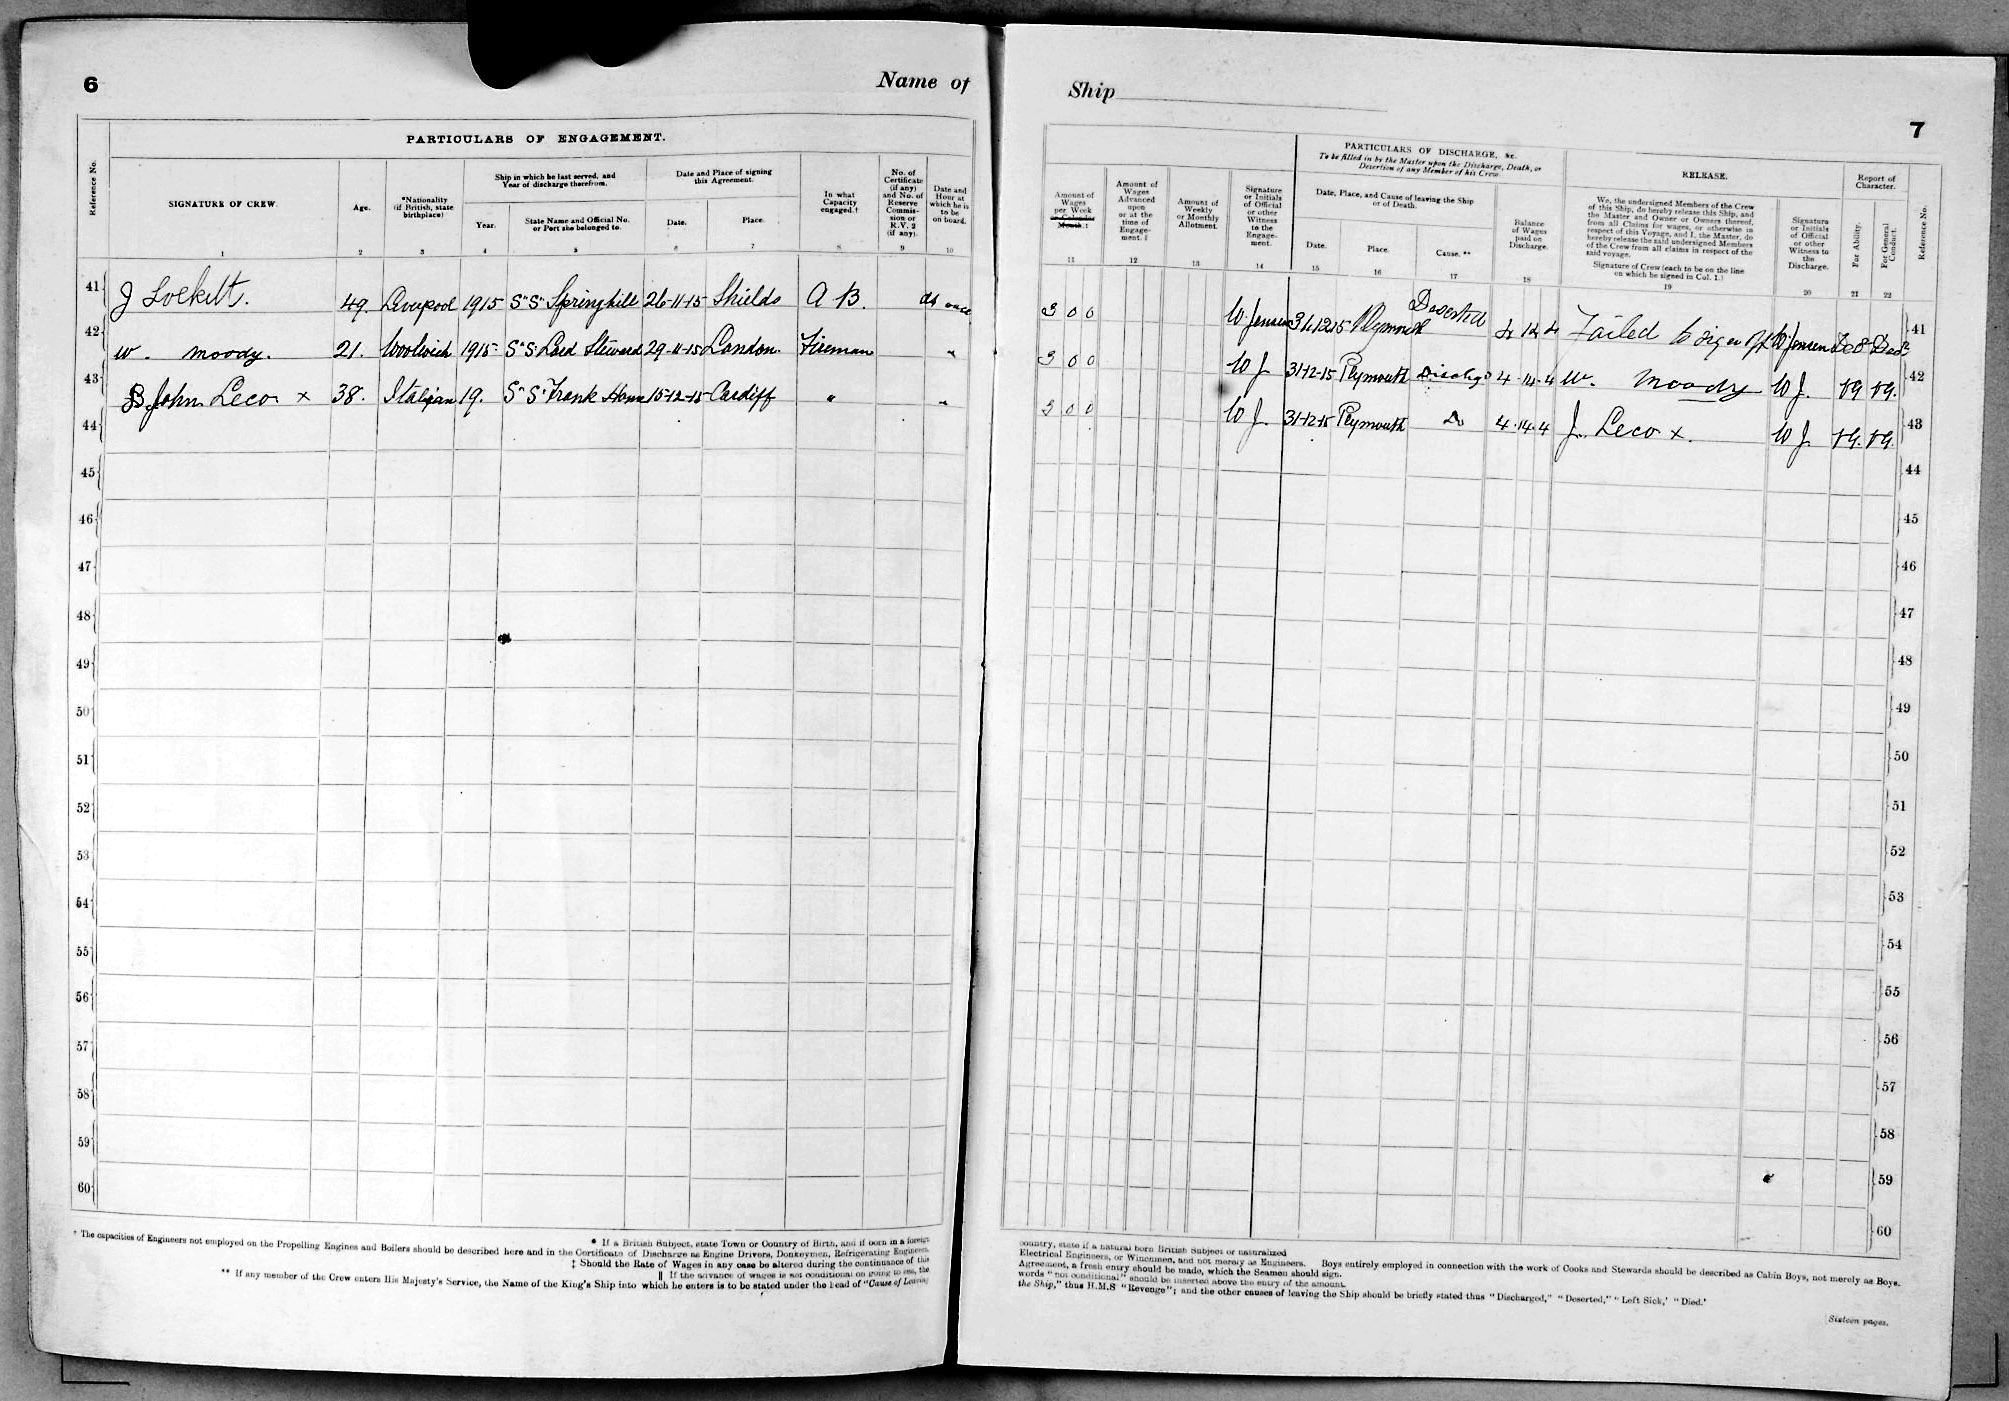 6
Name of
PARTICULARS OF ENGAGEMENT.
Reference No.
SIGNATURE OF CREW.
Age.
*Nationality
(if British, state
birthplace)
Ship in which he last served, and
Year of discharge therefrom.
Year.
State Name and Official No.
or Port she belonged to.
Date and Place of signing
this Agreement.
Date.
Place.
In what
Capacity
engaged.†
No. of
Certificate
(if any)
and No. of
Reserve
Commis-
sion or
R.V. 2
(if any).
Date and
Hour at
which he is
to be
on board.
1 2 3 4 5 6 7 8 9 10
41 J Lockett. 49. Liverpool 1915 S"S" Springhill 26-11-15 Shields A B. at once
42 W. Moody. 21. Woolwich 1915 S"S" Lord Steward 29-11-15 London. Fireman "
43 John Leco x 38. Italian 19. S"S" Frank 15-12-15 Cardiff " "
44
45
46
47
48
49
50
51
52
53
54
55
56
57
58
59
60
* If a British Subject, state Town or Country of Birth, and if born in a foreign
† The capacities of Engineers not employed on the Propelling Engines and Boilers should be described here and in the Certificate of Discharge as Engine Drivers, Donkeymen, Refrigerating Engineers,
‡ Should the Rate of Wages in any case be altered during the continuance of this
|| If the advance of wages is not conditional on going to sea, the
** If any member of the Crew enters His Majesty's Service, the Name of the King's Ship into which he enters is to be stated under the head of "Cause of Leaving
Ship
7
Amount of
Wages
per Week
or Calendar
Month.‡
Amount of
Wages
Advanced
upon
or at the
time of
Engage-
ment.||
Amount of
Weekly
or Monthly
Allotment.
Signature
or Initials
of Official
or other
Witness
to the
Engage-
ment.
PARTICULARS OF DISCHARGE, &c.
To be filled in by the Master upon the Discharge, Death, or
Desertion of any Member of his Crew.
Date, Place, and Cause of leaving the Ship
or of Death.
Date.
Place.
Cause.**
Balance
of Wages
paid on
Discharge.
RELEASE.
We, the undersigned Members of the Crew
of this Ship, do hereby release this Ship, and
the Master and Owner or Owners thereof,
from all Claims for wages, or otherwise in
respect of this Voyage, and I, the Master, do
hereby release the said undersigned Members
of the Crew from all claims in respect of the
said voyage.
Signature of Crew (each to be on the line
on which he signed in Col. 1.)
Signature
or Initials
of Official
or other
Witness to
the
Discharge.
Report of
Character.
For Ability.
For General
Conduct.
Reference No.
11 12 13 14 15 16 17 18 19 20 21 22
3 0 0 W. Jensen 31.12.15 Plymouth Deserted Failed to sign off W Jensen 41
3 0 0 W J. 31-12-15 Plymouth 4.14.4 W. Moody W J. VG VG. 42
3 0 0 W J. 31-12-15 Plymouth Do 4.14.4 J. Leco x. W J. VG. VG. 43
44
45
46
47
48
49
50
51
52
53
54
55
56
57
58
59
60
country, state if a natural born British Subject or naturalized
Electrical Engineers, or Winchmen, and not merely as Engineers. Boys entirely employed in connection with the work of Cooks and Stewards should be described as Cabin Boys, not merely as Boys.
Agreement, a fresh entry should be made, which the Seamen should sign.
words "not conditional" should be inserted above the entry of the amount.
the Ship," thus H.M.S "Revenge"; and the other causes of leaving the Ship should be briefly stated thus "Discharged," "Deserted," "Left Sick,' "Died.'
Sixteen pages.